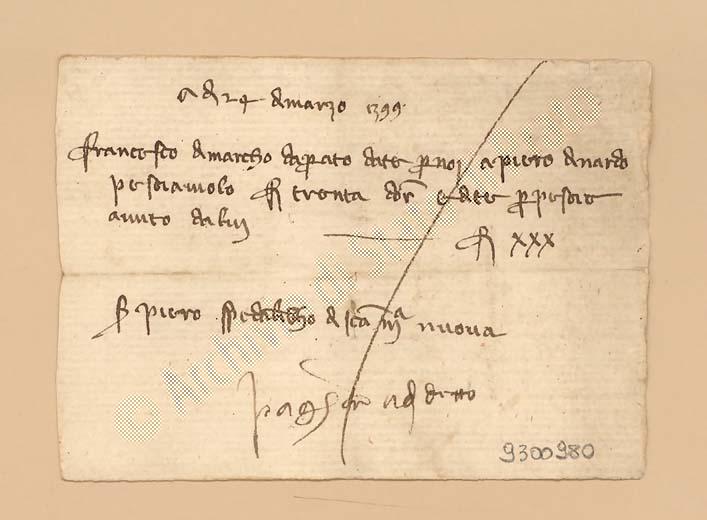 a dì 24 di marzo 1399
Francesco di marcho da prato date per noi a piero di nardo
pesciaiuolo fi trenta d'or e date per pescie
auuto da lui
fi XXX
piero spedalingho di sca ma nuoua
pag a dì detto
9300980
© Archivio di Stato di Prato